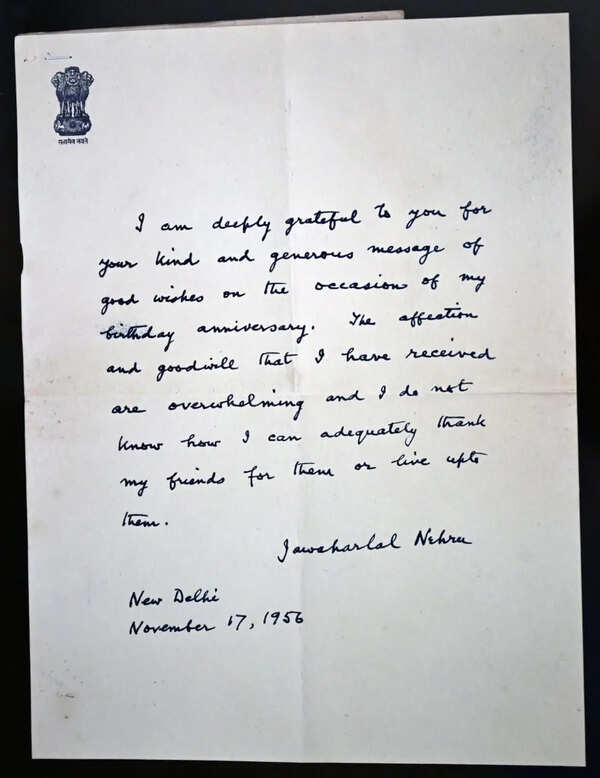 सत्यमेव जयते
I am deeply grateful to you for
your kind and generous message of
good wishes on the occasion of my
birthday anniversary. The affection
and goodwill that I have received
are overwhelming and I do not
know how I can adequately thank
my friends for them or live upto
them.
Jawaharlal Nehru
New Delhi
November 17, 1956